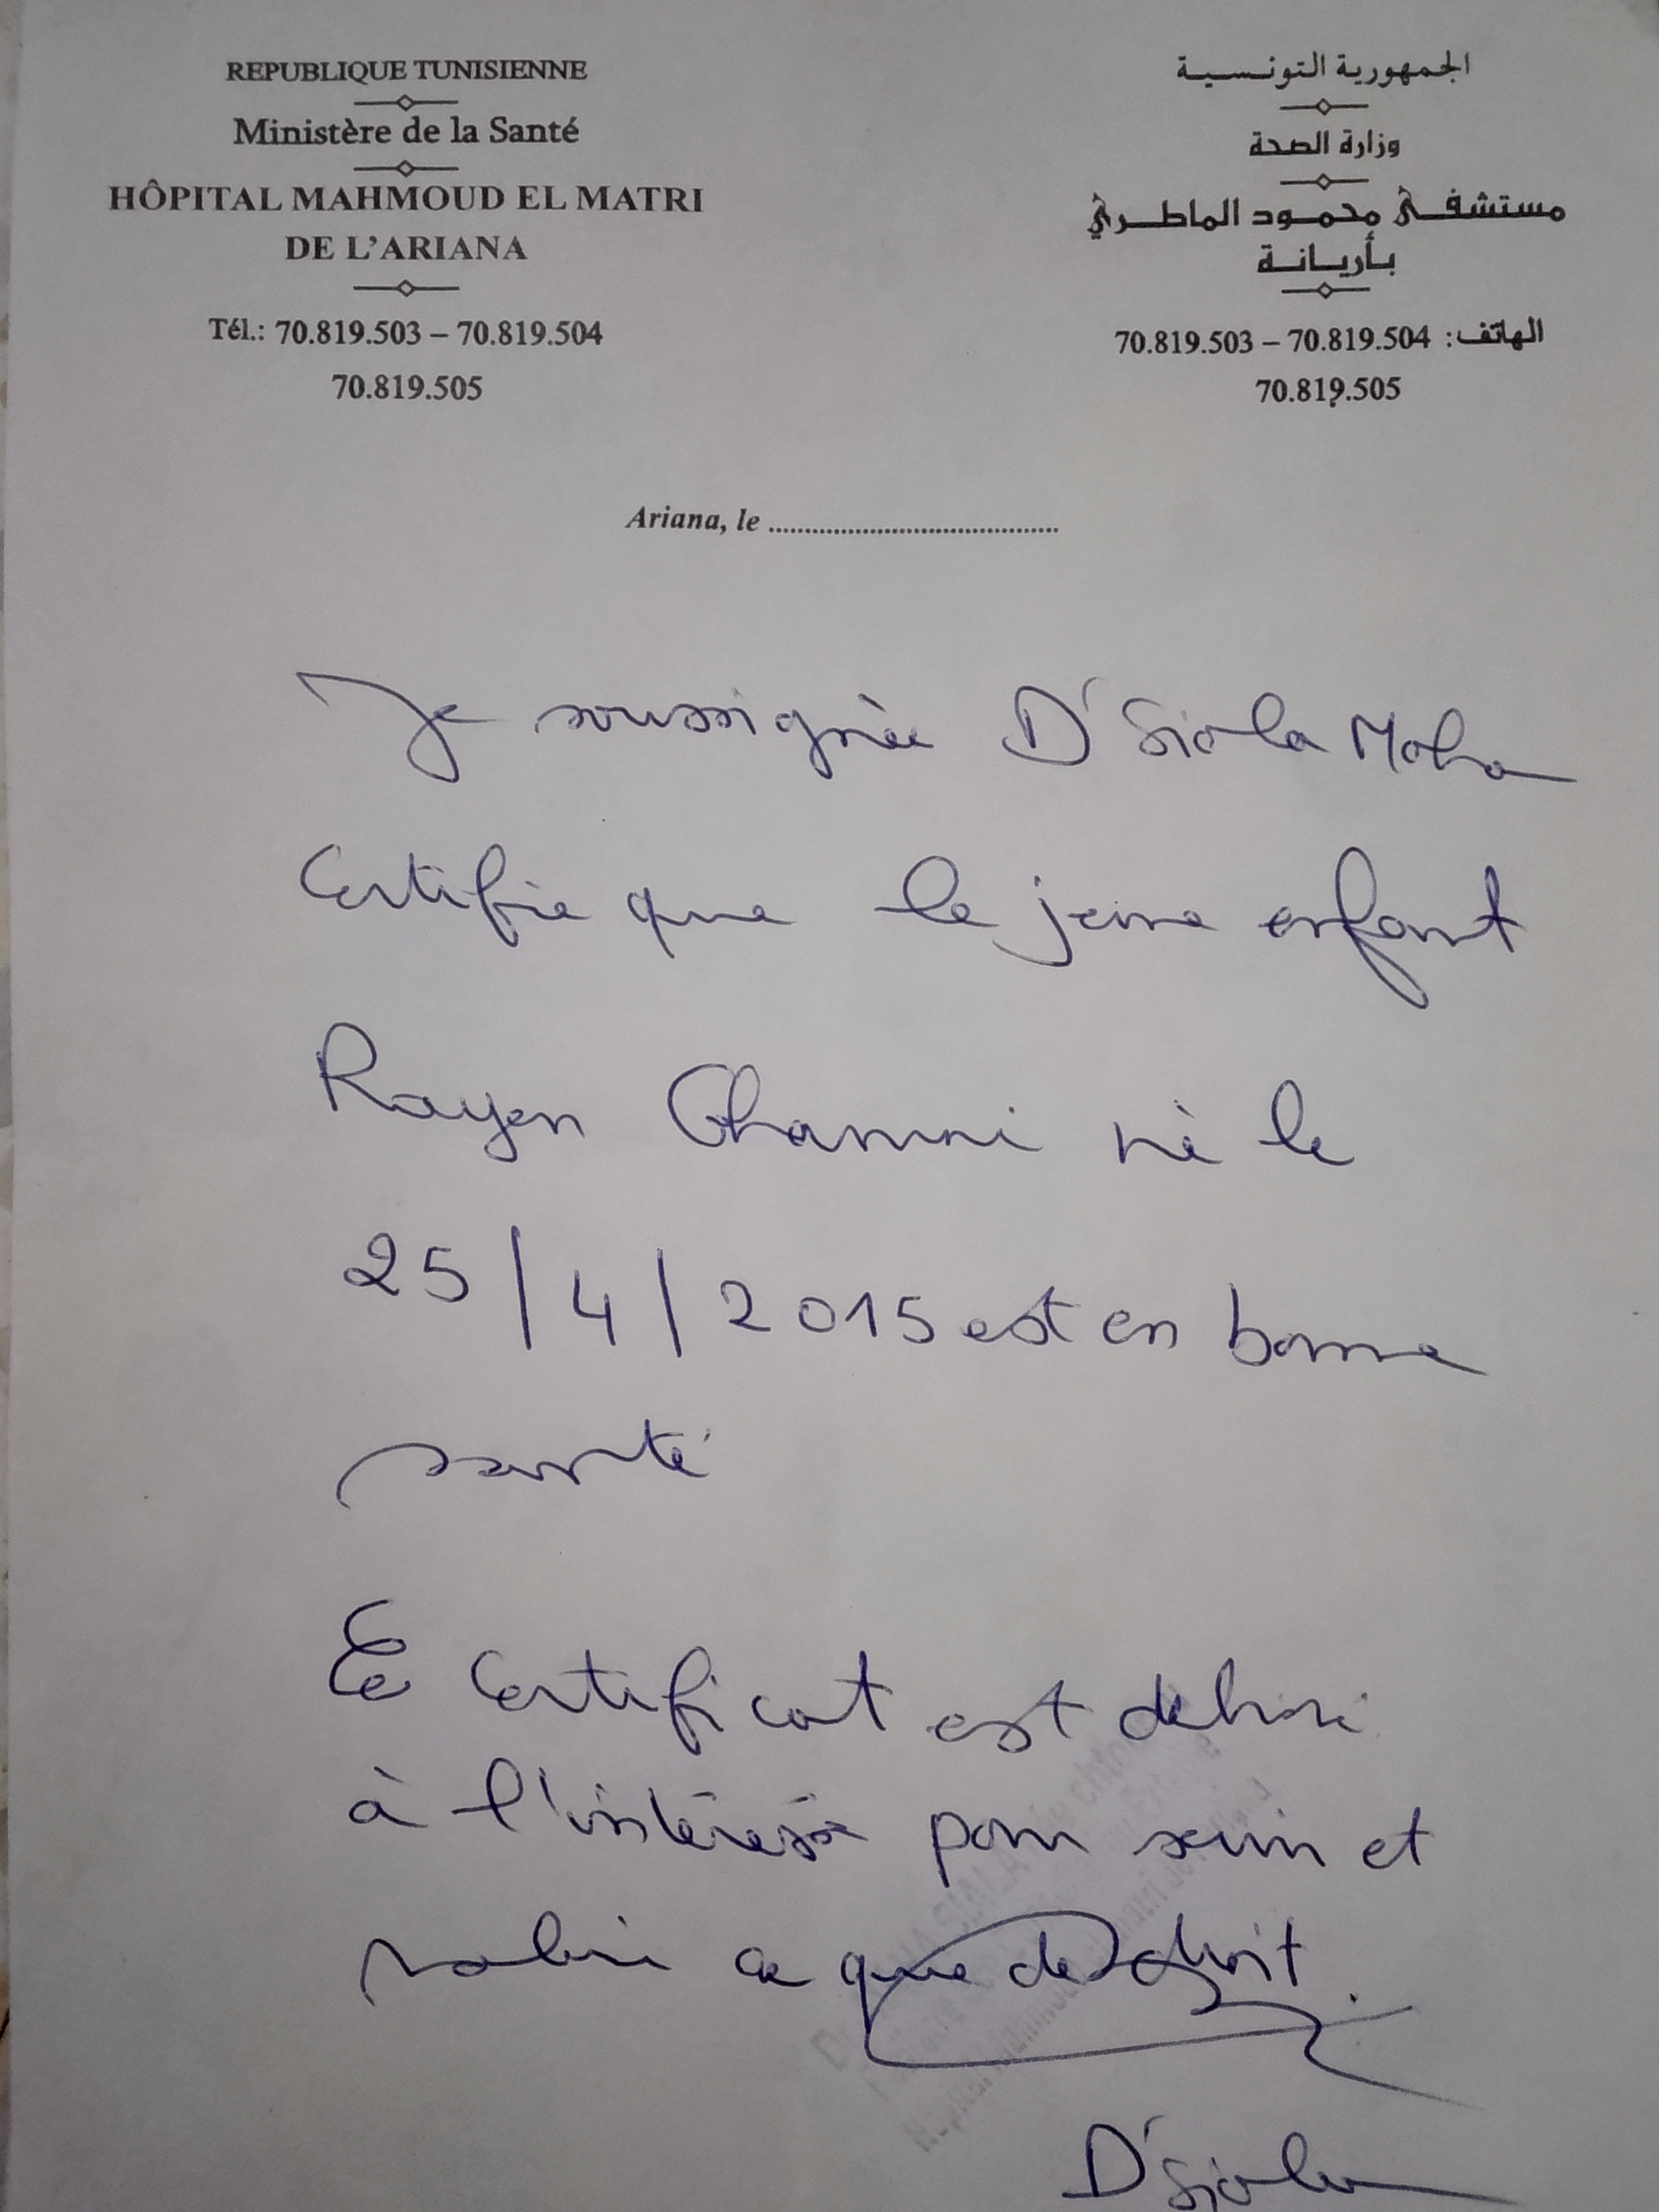 REPUBLIQUE TUNISIENNE
Ministère de la Santé
HÔPITAL MAHMOUD EL MATRI
DE L'ARIANA
Tél.: 70.819.503 – 70.819.504
70.819.505
الجمهورية التونسية
وزارة الصحة
مستشفى محمود الماطري
بأريانة
الهاتف: 70.819.504 – 70.819.503
70.819.505
Ariana, le ........................................
Je soussignée Dr Siala Maha
Certifie que le jeune enfant
Rayen Ghammi né le
25/4/2015 est en bonne
santé
Ce Certificat est délivré
à l'intéressé pour servir et
valoir ce que de droit.
Dr Siala